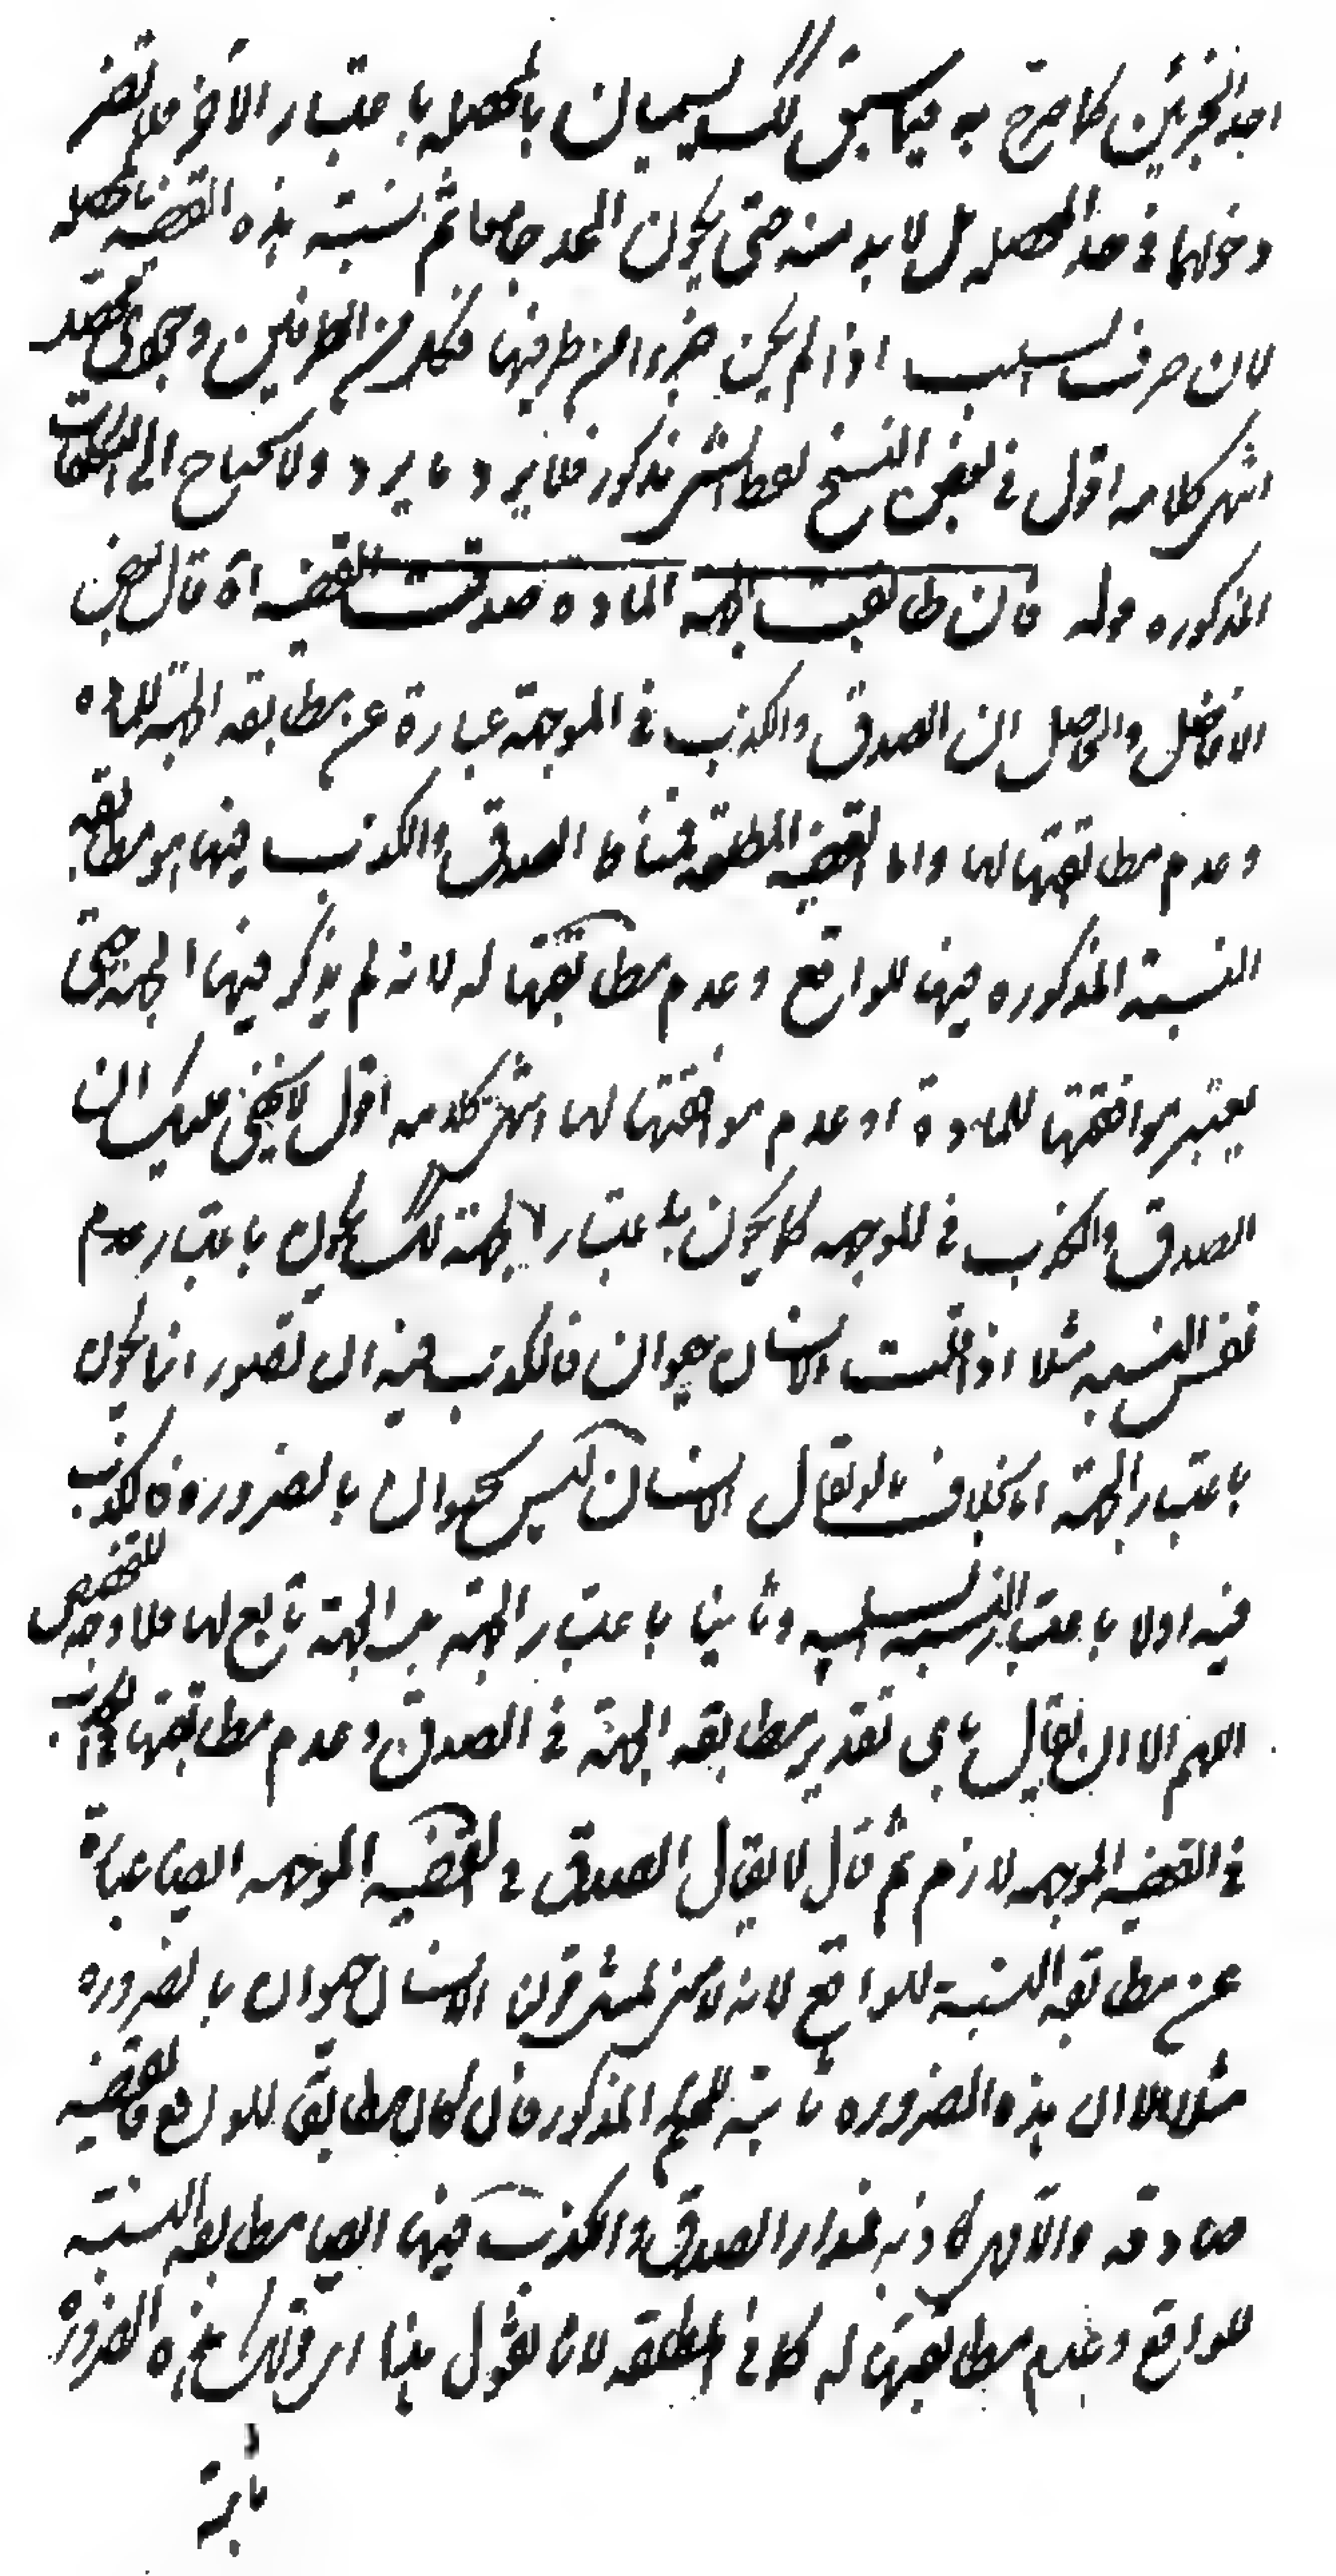 احد الجزئين كما صرح به فيما سبق كك يسميان بالمحصلة باعتبار الآخر فلا يضر
دخولهما في حد المحصله بل لا بد منه حتى يكون الحد جامعا ثم نسبته هذه القضيه محصله
لان حرف السلب اذا لم يكن جزءا من طرفيها فكل من الطرفين وجودى محصل
انتهى كلامه اقول في بعض النسخ لفظ مذكور فلا يرد ما يرد ولا يحتاج الى التكلفات
المذكوره قوله فان طابقت الجهة المادة صدقت القضيه اه قال بعض
الافاضل والحاصل ان الصدق والكذب في الموجهة عبارة عن مطابقه الجهة للمادة
وعدم مطابقتها لها واما القضيه المطلقه فمناط الصدق والكذب فيها هو مطابقه
النسبة المذكوره فيها للواقع وعدم مطابقتها له لانه لم يذكر فيها الجهة حتى
يعتبر موافقتها للمادة او عدم موافقتها لها انتهى كلامه اقول لا يخفى عليك ان
الصدق والكذب في الموجهه كما يكون باعتبار الجهة كك يكون باعتبار عدم
نفس النسبه مثلا اذا قلت الانسان حيوان فالكذب فيه ان تصور انما يكون
باعتبار الجهة بخلاف ما لو يقال الانسان ليس بحيوان بالضروره فالكذب
فيه اولا باعتبار النسبه السلبيه وثانيا باعتبار الجهة الجهة تابع لها فلا وجه للتخصيص
اللهم الا ان يقال باي تقدير مطابقه الجهة في الصدق وعدم مطابقتها في الكذب
في القضيه الموجهه لازم ثم قال لا يقال الصدق في القضيه الموجهه ايضا عبارة
عن مطابقه النسبة للواقع لانه لا معنى لمثل قولنا الانسان حيوان بالضروره
مثلا الا ان هذه الضروره ثابتة للحكم المذكور فان كان مطابقا للواقع فالقضيه
صادقه والا فهى كاذبه فمدار الصدق والكذب فيها ايضا مطابقه النسبه
للواقع وعدم مطابقتها له كما في المطلقه لانا نقول هنا ان قولك هذه الضرورة
ثابتة